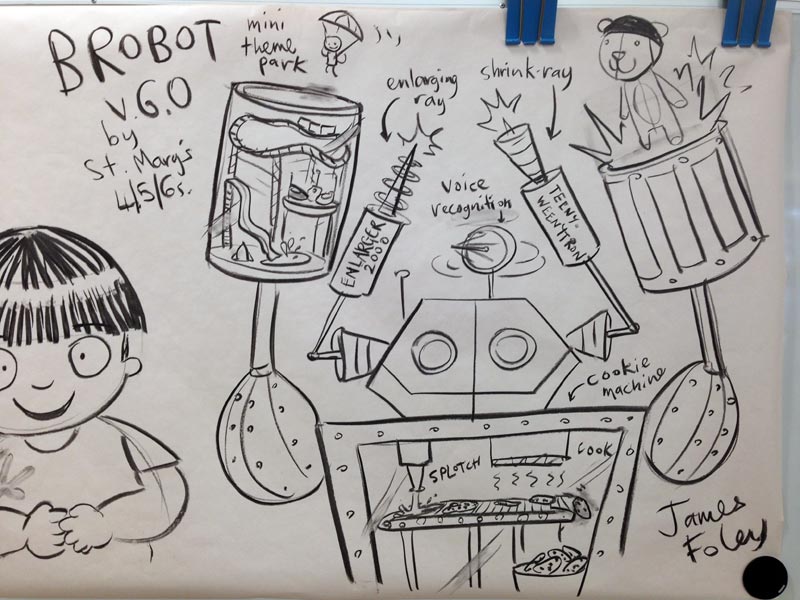 BROBOT
V.6.0
by
St. Mary's
4/5/6s.
mini
theme
park
enlarging
ray
shrink-ray
voice
recognition
ENLARGER
2000
TEENY-
WEENYTRON
cookie
machine
SPLOTCH
COOK
James
Foley